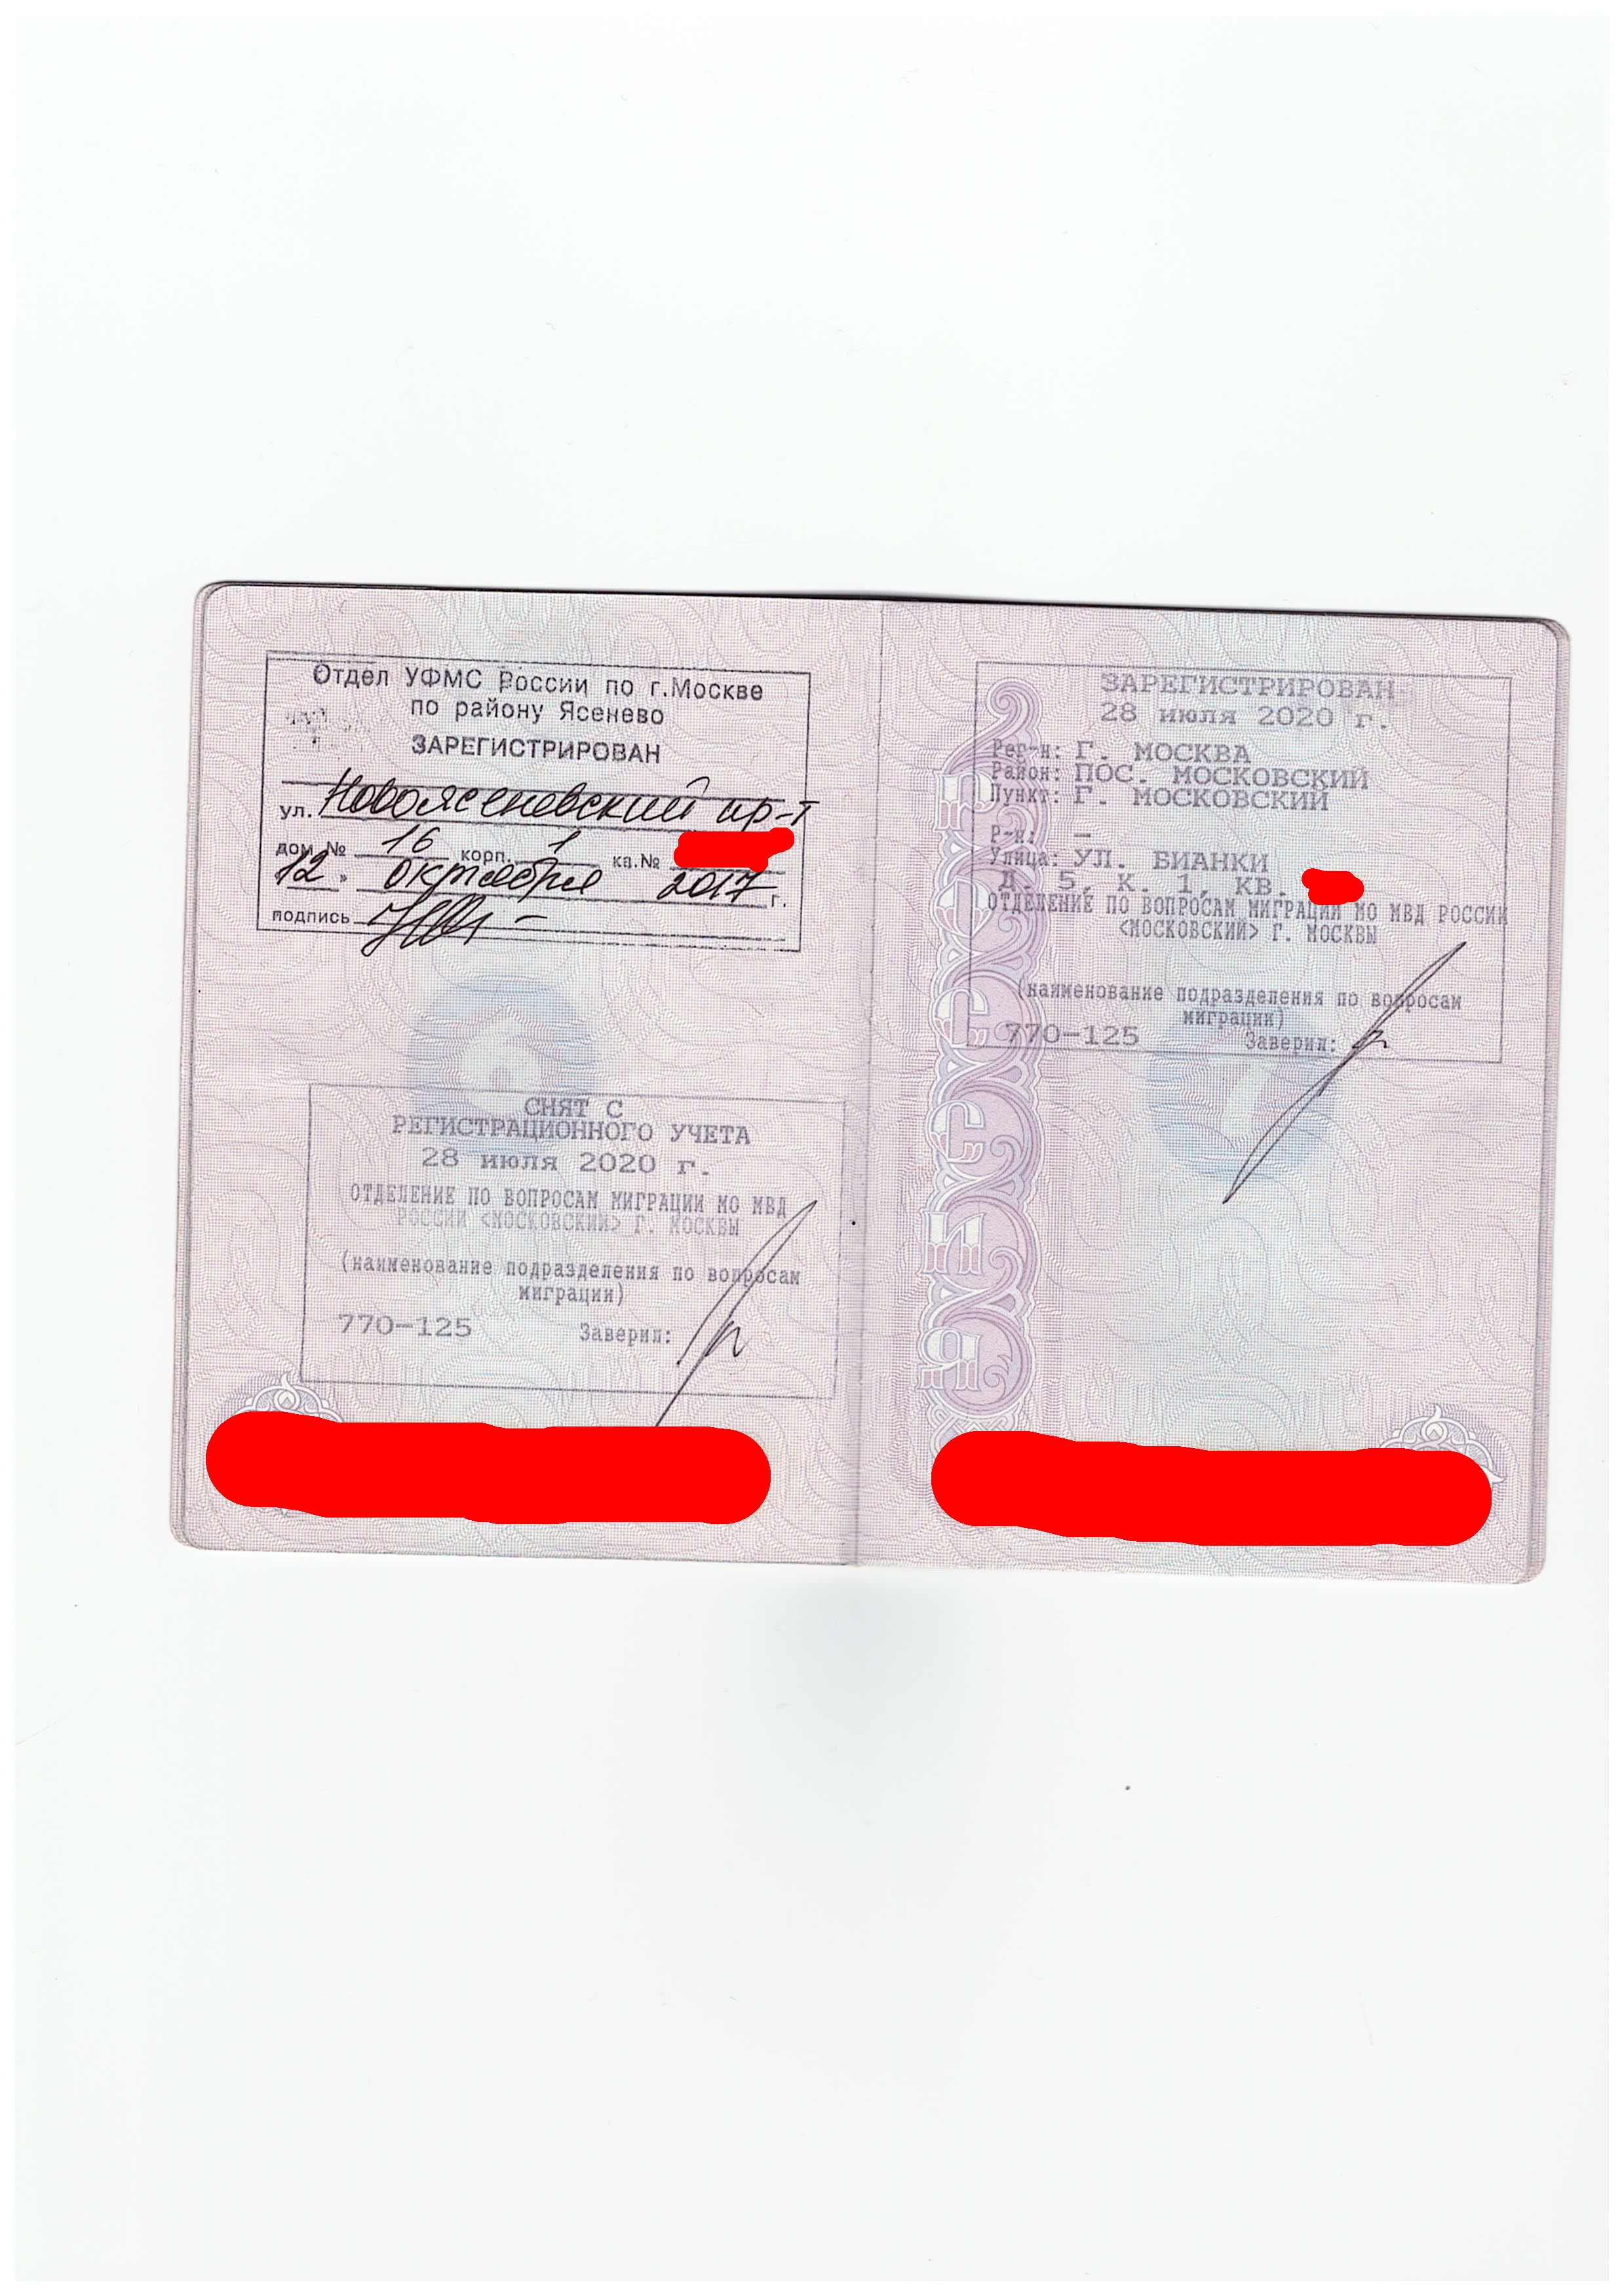 Отдел УФМС России по г.Москве
по району Ясенево
ЗАРЕГИСТРИРОВАН
ул. Новоясеневский пр-т
дом № 16 корп. 1 кв.№
12 » октября 2017 г.
подпись
СНЯТ С
РЕГИСТРАЦИОННОГО УЧЕТА
28 июля 2020 г.
ОТДЕЛЕНИЕ ПО ВОПРОСАМ МИГРАЦИИ МО МВД
РОССИИ <МОСКОВСКИЙ> Г. МОСКВЫ
(наименование подразделения по вопросам
миграции)
770-125 Заверил:
ЗАРЕГИСТРИРОВАН
28 июля 2020 г.
Рег-н: Г. МОСКВА
Район: ПОС. МОСКОВСКИЙ
Пункт: Г. МОСКОВСКИЙ
Р-н: –
Улица: УЛ. БИАНКИ
Д. 5, К. 1, КВ.
ОТДЕЛЕНИЕ ПО ВОПРОСАМ МИГРАЦИИ МО МВД РОССИИ
<МОСКОВСКИЙ> Г. МОСКВЫ
(наименование подразделения по вопросам
миграции)
770-125 Заверил:
РОССИЯ
6
7